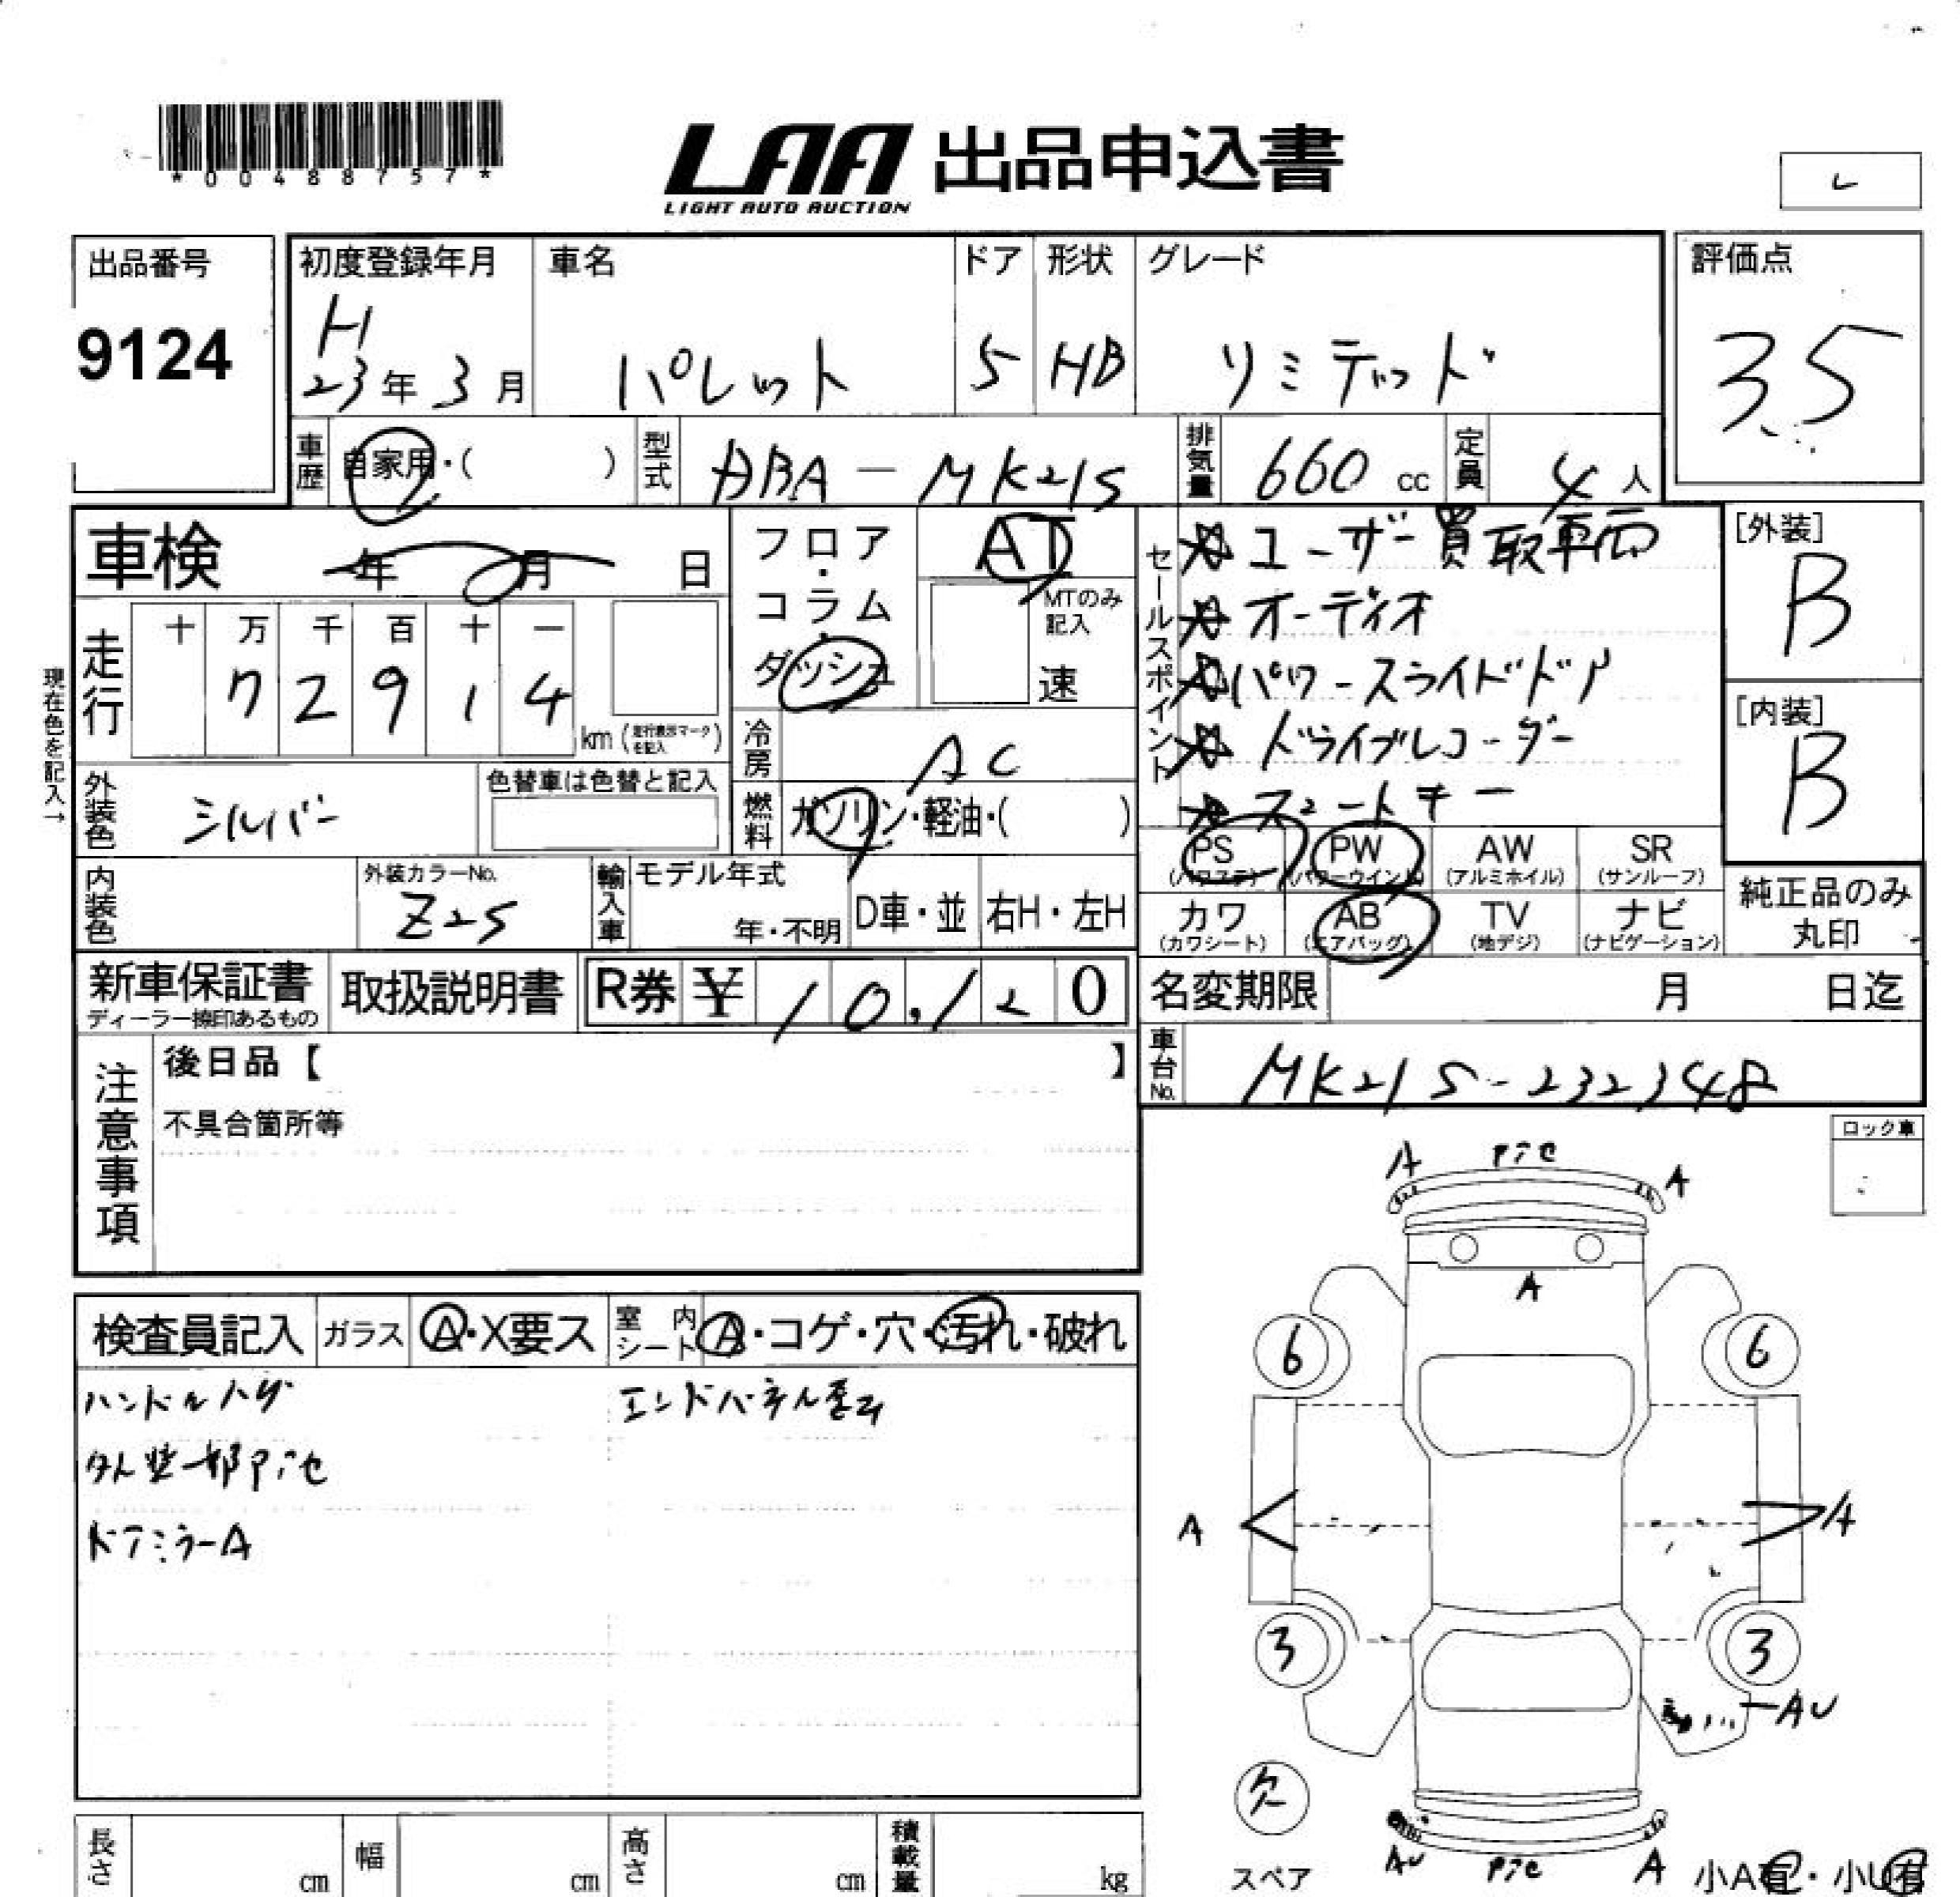 *00488757*
LAA 出品申込書
LIGHT AUTO AUCTION
レ
出品番号
9124
初度登録年月
H
23年 3月
車名
パレット
ドア
5
形状
HB
グレード
リミテッド
評価点
3.5
車歴 自家用・( )
型式 DBA-MK21S
排気量 660 cc
定員 4人
車検 年 月 日
フロア・コラム・ダッシュ
AT
MTのみ記入
速
セールスポイント
ユーザー買取車両
オーディオ
パワースライドドア
ドライブレコーダー
スマートキー
[外装]
B
[内装]
B
現在色を記入→
走行
十 万 千 百 十 一
7 2 9 1 4
km (走行表示マークを記入)
冷房 AC
外装色 シルバー
色替車は色替と記入
燃料 ガソリン・軽油・( )
内装色
外装カラーNo.
Z2S
輸入車 モデル年式
年・不明
D車・並
右H・左H
PS (パワステ)
PW (パワーウインド)
AW (アルミホイル)
SR (サンルーフ)
カワ (カワシート)
AB (エアバッグ)
TV (地デジ)
ナビ (ナビゲーション)
純正品のみ
丸印
新車保証書
ディーラー捺印あるもの
取扱説明書
R券 ¥ 10,120
名変期限 月 日迄
車台No. MK21S-232348
注意事項
後日品【 】
不具合箇所等
ロック車
検査員記入
ガラス A・X要ス
室内シート A・コゲ・穴・汚れ・破れ
ハンドルハゲ
エンドパネル歪み
外装一部P禿
ドアミラーA
A
A
A
6
6
A
A
3
3
AU
欠
スペア
AU
A
小A有・小U有
長さ cm
幅 cm
高さ cm
積載量 kg